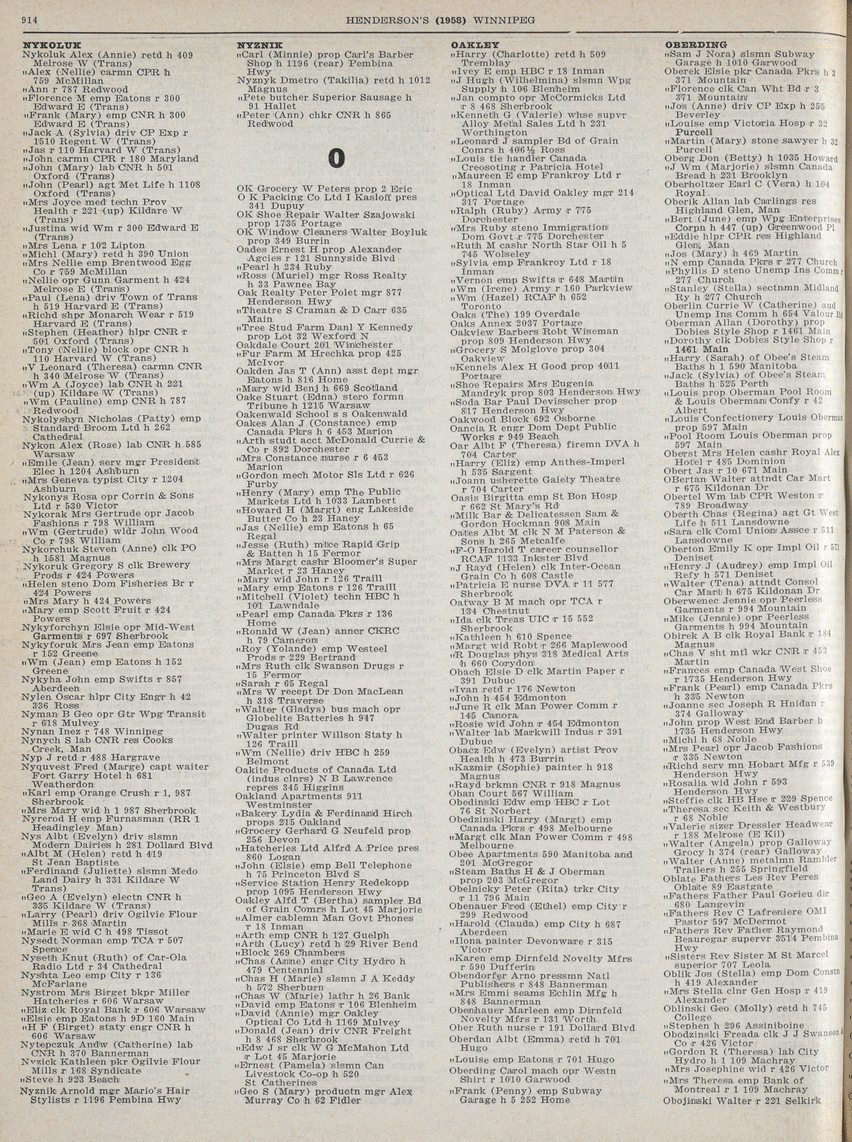 914
HENDERSON'S (1958) WINNIPEG
NYKOLUK
Nykoluk Alex (Annie) retd h 409
Melrose W (Trans)
"Alex (Nellie) carmn CPR h
759 McMillan
"Ann r 787 Redwood
"Florence M emp Eatons r 300
Edward E (Trans)
"Frank (Mary) emp CNR h 300
Edward E (Trans)
"Jack A (Sylvia) driv CP Exp r
1510 Regent W (Trans)
"Jas r 110 Harvard W (Trans)
"John carmn CPR r 180 Maryland
"John (Mary) lab CNR h 501
Oxford (Trans)
"John (Pearl) agt Met Life h 1108
Oxford (Trans)
"Mrs Joyce med techn Prov
Health r 221 (up) Kildare W
(Trans)
"Justina wid Wm r 300 Edward E
(Trans)
"Mrs Lena r 102 Lipton
"Michl (Mary) retd h 390 Union
"Mrs Nellie emp Brentwood Egg
Co r 759 McMillan
"Nellie opr Gunn Garment h 424
Melrose E (Trans)
"Paul (Lena) driv Town of Trans
h 519 Harvard E (Trans)
"Richd shpr Monarch Wear r 519
Harvard E (Trans)
"Stephen (Heather) hlpr CNR r
501 Oxford (Trans)
"Tony (Nellie) block opr CNR h
110 Harvard W (Trans)
"V Leonard (Theresa) carmn CNR
h 340 Melrose W (Trans)
"Wm A (Joyce) lab CNR h 221
(up) Kildare W (Trans)
"Wm (Pauline) emp CNR h 787
Redwood
Nykolyshyn Nicholas (Patty) emp
Standard Broom Ltd h 262
Cathedral
Nykon Alex (Rose) lab CNR h 585
Warsaw
"Emile (Jean) serv mgr President
Elec h 1204 Ashburn
"Mrs Geneva typist City r 1204
Ashburn
Nykonys Rosa opr Corrin & Sons
Ltd r 530 Victor
Nykorak Mrs Gertrude opr Jacob
Fashions r 798 William
"Wm (Gertrude) wldr John Wood
Co r 798 William
Nykorchuk Steven (Anne) clk PO
h 1581 Magnus
Nykoruk Gregory S clk Brewery
Prods r 424 Powers
"Helen steno Dom Fisheries Br r
424 Powers
"Mrs Mary h 424 Powers
"Mary emp Scott Fruit r 424
Powers
Nykyforchyn Elsie opr Mid-West
Garments r 697 Sherbrook
Nykyforuk Mrs Jean emp Eatons
r 152 Greene
"Wm (Jean) emp Eatons h 152
Greene
Nykyha John emp Swifts r 857
Aberdeen
Nylen Oscar hlpr City Engr h 42
336 Ross
Nyman B Geo opr Gtr Wpg Transit
r 618 Mulvey
Nynan Inez r 748 Winnipeg
Nynych S lab CNR res Cooks
Creek, Man
Nyp J retd r 488 Hargrave
Nyquvest Fred (Marge) capt waiter
Fort Garry Hotel h 681
Weatherdon
"Karl emp Orange Crush r 1, 987
Sherbrook
"Mrs Mary wid h 1 987 Sherbrook
Nyrerod H emp Furnasman (RR 1
Headingley Man)
Nys Albt (Evelyn) driv slsmn
Modern Dairies h 281 Dollard Blvd
"Albt M (Helen) retd h 419
St Jean Baptiste
"Ferdinand (Juliette) slsmn Medo
Land Dairy h 331 Kildare W
Trans)
"Geo A (Evelyn) electn CNR h
335 Kildare W (Trans)
"Larry (Pearl) driv Ogilvie Flour
Mills r 368 Martin
"Marie E wid C h 498 Tissot
Nysedt Norman emp TCA r 507
Spence
Nyseth Knut (Ruth) of Car-Ola
Radio Ltd r 34 Cathedral
Nyshta Leo emp City r 136
McFarlane
Nystrom Mrs Birget bkpr Miller
Hatcheries r 606 Warsaw
"Eliz clk Royal Bank r 606 Warsaw
"Elsie emp Eatons h 9D 160 Main
"H F (Birget) staty engr CNR h
606 Warsaw
Nytepczuk Andw (Catherine) lab
CNR h 370 Bannerman
Nyzick Kathleen pkr Ogilvie Flour
Mills r 168 Syndicate
"Steve h 923 Beach
Nyznik Arnold mgr Mario's Hair
Stylists r 1196 Pembina Hwy
NYZNIK
"Carl (Minnie) prop Carl's Barber
Shop h 1196 (rear) Pembina
Hwy
Nyznyk Dmetro (Takilia) retd h 1012
Magnus
"Pete butcher Superior Sausage h
91 Hallet
"Peter (Ann) chkr CNR h 865
Redwood
O
OK Grocery W Peters prop 2 Eric
O K Packing Co Ltd I Kasloff pres
341 Dupuy
OK Shoe Repair Walter Szajowski
prop 1735 Portage
OK Window Cleaners Walter Boyluk
prop 349 Burrin
Oades Ernest H prop Alexander
Agcies r 121 Sunnyside Blvd
"Pearl h 234 Ruby
"Ross (Muriel) mgr Ross Realty
h 33 Pawnee Bay
Oak Realty Peter Polet mgr 877
Henderson Hwy
"Theatre S Craman & D Carr 635
Main
"Tree Stud Farm Danl Y Kennedy
prop Lot 32 Wexford N
Oakdale Court 201 Winchester
"Fur Farm M Hrechka prop 425
McIvor
Oakden Jas T (Ann) asst dept mgr
Eatons h 816 Home
"Mary wid Benj h 669 Scotland
Oake Stuart (Edna) stero formn
Tribune h 1215 Warsaw
Oakenwald School s s Oakenwald
Oakes Alan J (Constance) emp
Canada Pkrs h 6 453 Marion
"Arth studt acct McDonald Currie &
Co r 892 Dorchester
"Mrs Constance nurse r 6 453
Marion
"Gordon mech Motor Sls Ltd r 626
Furby
"Henry (Mary) emp The Public
Markets Ltd h 1033 Lambert
"Howard H (Margt) eng Lakeside
Butter Co h 23 Haney
"Jas (Nellie) emp Eatons h 65
Regal
"Jesse (Ruth) mtce Rapid Grip
& Batten h 15 Fermor
"Mrs Margt cashr Bloomer's Super
Market r 23 Haney
"Mary wid John r 126 Traill
"Mary emp Eatons r 126 Traill
"Mitchell (Violet) techn HBC h
101 Lawndale
"Pearl emp Canada Pkrs r 136
Home
"Ronald W (Jean) anner CKRC
h 79 Cameron
"Roy (Yolande) emp Westeel
Prods r 229 Bertrand
"Mrs Ruth clk Swanson Drugs r
15 Fermor
"Sarah r 65 Regal
"Mrs W recept Dr Don MacLean
h 318 Traverse
"Walter (Gladys) bus mach opr
Globelite Batteries h 947
Dugas Rd
"Walter printer Willson Staty h
126 Traill
"Wm (Nellie) driv HBC h 259
Belmont
Oakite Products of Canada Ltd
(indus clnrs) N B Lawrence
repres 345 Higgins
Oakland Apartments 911
Westminster
"Bakery Lydia & Ferdinand Hirch
props 215 Oakland
"Grocery Gerhard G Neufeld prop
256 Devon
"Hatcheries Ltd Alfrd A Price pres
860 Logan
"John (Elsie) emp Bell Telephone
h 75 Princeton Blvd S
"Service Station Henry Redekopp
prop 1095 Henderson Hwy
Oakley Alfd T (Bertha) sampler Bd
of Grain Comrs h Lot 45 Marjorie
"Almer cablemn Man Govt Phones
r 18 Inman
"Arth emp CNR h 127 Guelph
"Arth (Lucy) retd h 29 River Bend
"Block 269 Chambers
"Chas (Anne) engr City Hydro h
479 Centennial
"Chas H (Marie) slsmn J A Keddy
h 572 Sherburn
"Chas W (Marie) lathr h 26 Bank
"David emp Eatons r 106 Blenheim
"David (Annie) mgr Oakley
Optical Co Ltd h 1169 Mulvey
"Donald (Jean) driv CNR Freight
h 8 468 Sherbrook
"Edw J sr clk W G McMahon Ltd
r Lot 45 Marjorie
"Ernest (Pamela) slsmn Can
Livestock Co-op h 520
St Catherines
"Geo S (Mary) productn mgr Alex
Murray Co h 62 Fidler
OAKLEY
"Harry (Charlotte) retd h 509
Tremblay
"Ivey E emp HBC r 18 Inman
"J Hugh (Wilhelmina) slsmn Wpg
Supply h 106 Blenheim
"Jan compto opr McCormicks Ltd
r 8 468 Sherbrook
"Kenneth G (Valerie) whse supvr
Alloy Metal Sales Ltd h 231
Worthington
"Leonard J sampler Bd of Grain
Comrs h 406½ Ross
"Louis tie handler Canada
Creosoting r Patricia Hotel
"Maureen E emp Frankroy Ltd r
18 Inman
"Optical Ltd David Oakley mgr 214
317 Portage
"Ralph (Ruby) Army r 775
Dorchester
"Mrs Ruby steno Immigration
Dom Govt r 775 Dorchester
"Ruth M cashr North Star Oil h 5
745 Wolseley
"Sylvia emp Frankroy Ltd r 18
Inman
"Vernon emp Swifts r 648 Martin
"Wm (Irene) Army r 160 Parkview
"Wm (Hazel) RCAF h 652
Toronto
Oaks (The) 199 Overdale
Oaks Annex 2037 Portage
Oakview Barbers Robt Wiseman
prop 809 Henderson Hwy
"Grocery S Molglove prop 304
Oakview
"Kennels Alex H Good prop 4011
Portage
"Shoe Repairs Mrs Eugenia
Mandryk prop 803 Henderson Hwy
"Soda Bar Paul Devisscher prop
817 Henderson Hwy
Oakwood Block 692 Osborne
Oancia R engr Dom Dept Public
Works r 949 Beach
Oar Albt F (Theresa) firemn DVA h
704 Carter
"Harry (Eliz) emp Anthes-Imperl
h 535 Sargent
"Joann usherette Gaiety Theatre
r 704 Carter
Oasis Birgitta emp St Bon Hosp
r 662 St Mary's Rd
"Milk Bar & Delicatessen Sam &
Gordon Hockman 908 Main
Oates Albt M clk N M Paterson &
Sons h 265 Metcalfe
"F-O Harold T career counsellor
RCAF 1133 Inkster Blvd
"J Rayd (Helen) clk Inter-Ocean
Grain Co h 608 Castle
"Patricia E nurse DVA r 11 577
Sherbrook
Oatway B M mach opr TCA r
134 Chestnut
"Ida clk Treas UIC r 15 552
Sherbrook
"Kathleen h 610 Spence
"Margt wid Robt r 266 Maplewood
"R Douglas phys 318 Medical Arts
h 660 Corydon
Obach Elsie D clk Martin Paper r
391 Dubuc
"Ivan retd r 176 Newton
"John h 454 Edmonton
"June R clk Man Power Comm r
145 Canora
"Rosie wid John r 454 Edmonton
"Walter lab Markwill Indus r 391
Dubuc
Obacz Edw (Evelyn) artist Prov
Health h 473 Burrin
"Kazmir (Sophie) painter h 918
Magnus
"Rayd brkmn CNR r 918 Magnus
Oban Court 567 William
Obedinski Edw emp HBC r Lot
76 St Norbert
Obedzinski Harry (Margt) emp
Canada Pkrs r 498 Melbourne
"Margt clk Man Power Comm r 498
Melbourne
Obee Apartments 590 Manitoba and
201 McGregor
"Steam Baths H & J Oberman
prop 203 McGregor
Obelnicky Peter (Rita) trkr City
r 11 796 Main
Obenauer Fred (Ethel) emp City r
299 Redwood
"Harold (Clauda) emp City h 687
Aberdeen
"Ilona painter Devonware r 315
Victor
"Karen emp Dirnfeld Novelty Mfrs
r 590 Dufferin
Obendorfer Arno pressmn Natl
Publishers r 848 Bannerman
"Mrs Emmi seams Echlin Mfg h
848 Bannerman
Obenhauer Marleen emp Dirnfeld
Novelty Mfrs r 131 Worth
Ober Ruth nurse r 191 Dollard Blvd
Oberdan Albt (Emma) retd h 701
Hugo
"Louise emp Eatons r 701 Hugo
Oberding Carol mach opr Westn
Shirt r 1010 Garwood
"Frank (Penny) emp Subway
Garage h 5 252 Home
OBERDING
"Sam J Nora) slsmn Subway
Garage h 1010 Garwood
Oberek Elsie pkr Canada Pkrs h 3
371 Mountain
"Florence clk Can Wht Bd r 3
371 Mountain
"Jos (Anne) driv CP Exp h 255
Beverley
"Louise emp Victoria Hosp r 32
Purcell
"Martin (Mary) stone sawyer h 32
Purcell
Oberg Don (Betty) h 1035 Howard
"J Wm (Marjorie) slsmn Canada
Bread h 231 Brooklyn
Oberholtzer Earl C (Vera) h 104
Royal
Oberik Allan lab Carlings res
Highland Glen, Man
"Bert (June) emp Wpg Enterprises
Corpn h 447 (up) Greenwood Pl
"Eddie hlpr CPR res Highland
Glen, Man
"Jos (Mary) h 469 Martin
"N emp Canada Pkrs r 277 Church
"Phyllis D steno Unemp Ins Comm r
277 Church
"Stanley (Stella) sectnmn Midland
Ry h 277 Church
Oberlin Currie W (Catherine) aud
Unemp Ins Comm h 654 Valour Rd
Oberman Allan (Dorothy) prop
Dobies Style Shop r 1461 Main
"Dorothy clk Dobies Style Shop r
1461 Main
"Harry (Sarah) of Obee's Steam
Baths h 1 590 Manitoba
"Jack (Sylvia) of Obee's Steam
Baths h 525 Perth
"Louis prop Oberman Pool Room
& Louis Oberman Confy r 42
Albert
"Louis Confectionery Louis Oberman
prop 597 Main
"Pool Room Louis Oberman prop
597 Main
Oberst Mrs Helen cashr Royal Alex
Hotel r 485 Dominion
Obert Jas r 10 671 Main
OBertan Walter attndt Car Mart
r 675 Kildonan Dr
Obertel Wm lab CPR Weston r
789 Broadway
Oberth Chas (Regina) agt Gt West
Life h 511 Lansdowne
"Sara clk Coml Union Assce r 511
Lansdowne
Oberton Emily K opr Impl Oil r 571
Deniset
"Henry J (Audrey) emp Impl Oil
Refy h 571 Deniset
"Walter (Tena) attndt Consol
Car Mart h 675 Kildonan Dr
Oberwenec Jennie opr Peerless
Garments r 994 Mountain
"Mike (Jennie) opr Peerless
Garments h 994 Mountain
Obirek A B clk Royal Bank r 184
Magnus
"Chas V sht mtl wkr CNR r 453
Martin
"Frances emp Canada West Shoe
r 1735 Henderson Hwy
"Frank (Pearl) emp Canada Pkrs
h 335 Newton
"Joanne sec Joseph R Hnidan r
374 Galloway
"John prop West End Barber h
1735 Henderson Hwy
"Michl h 68 Noble
"Mrs Pearl opr Jacob Fashions
r 335 Newton
"Richd serv mn Hobart Mfg r 539
Henderson Hwy
"Rosalia wid John r 593
Henderson Hwy
"Steffie clk HB Hse r 229 Spence
"Theresa sec Keith & Westbury
r 68 Noble
"Valerie sizer Dressler Headwear
r 188 Melrose (E Kil)
"Walter (Angela) prop Galloway
Grocy h 374 (rear) Galloway
"Walter (Anne) metalmn Rambler
Trailers h 255 Springfield
Oblate Fathers Les Rev Peres
Oblate 89 Eastgate
"Fathers Father Paul Gorieu dir
680 Langevin
"Fathers Rev C Lafreniere OMI
Pastor 597 McDermot
"Fathers Rev Father Raymond
Beauregar supervr 3514 Pembina
Hwy
"Sisters Rev Sister M St Marcel
superior 707 Leola
Oblik Jos (Stella) emp Dom Consta
h 419 Alexander
"Mrs Stella clnr Gen Hosp r 419
Alexander
Oblinski Geo (Molly) retd h 745
College
"Stephen h 296 Assiniboine
Obodzinski Freada clk J J Swanson &
Co r 426 Victor
"Gordon R (Theresa) lab City
Hydro h 1 109 Machray
"Mrs Josephine wid r 426 Victor
"Mrs Theresa emp Bank of
Montreal r 1 109 Machray
Obojinski Walter r 221 Selkirk